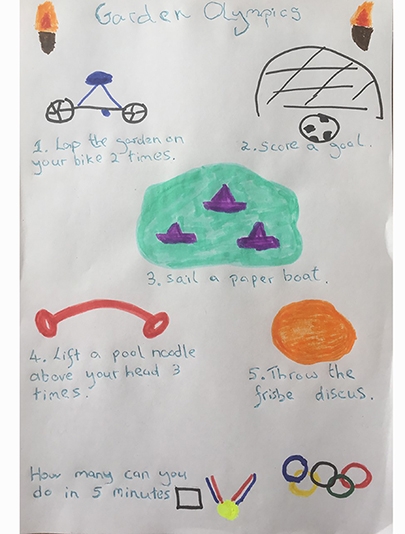 Garden Olympics
1. Lap the garden on
your bike 2 times.
2. Score a goal.
3. Sail a paper boat.
4. Lift a pool noodle
above your head 3
times.
5. Throw the
frisbe discus.
How many can you
do in 5 minutes